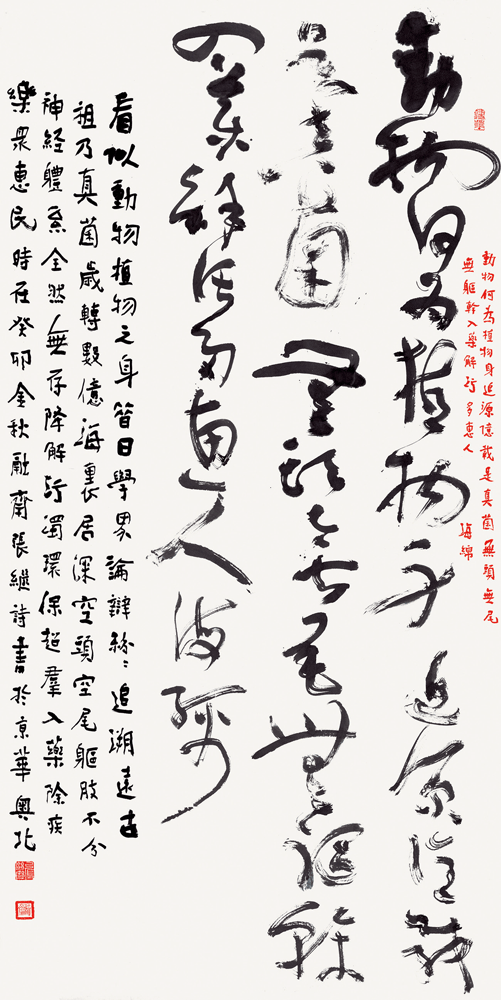 動物何為植物身追源億載
是真菌無頭無尾無軀幹
入藥解污多惠人海綿
動物何為植物身追源億載是真菌無頭無尾
無軀幹入藥解污多惠人 海綿
看似動物植物之身昔日學界論辯紛〻追溯遠古
祖乃真菌歲轉數億海裏居深空頭空尾軀肢不分
神經體系全然無存降解污濁環保超羣入藥除疾
樂眾惠民時在癸卯金秋融齋張繼詩書於京華奧北